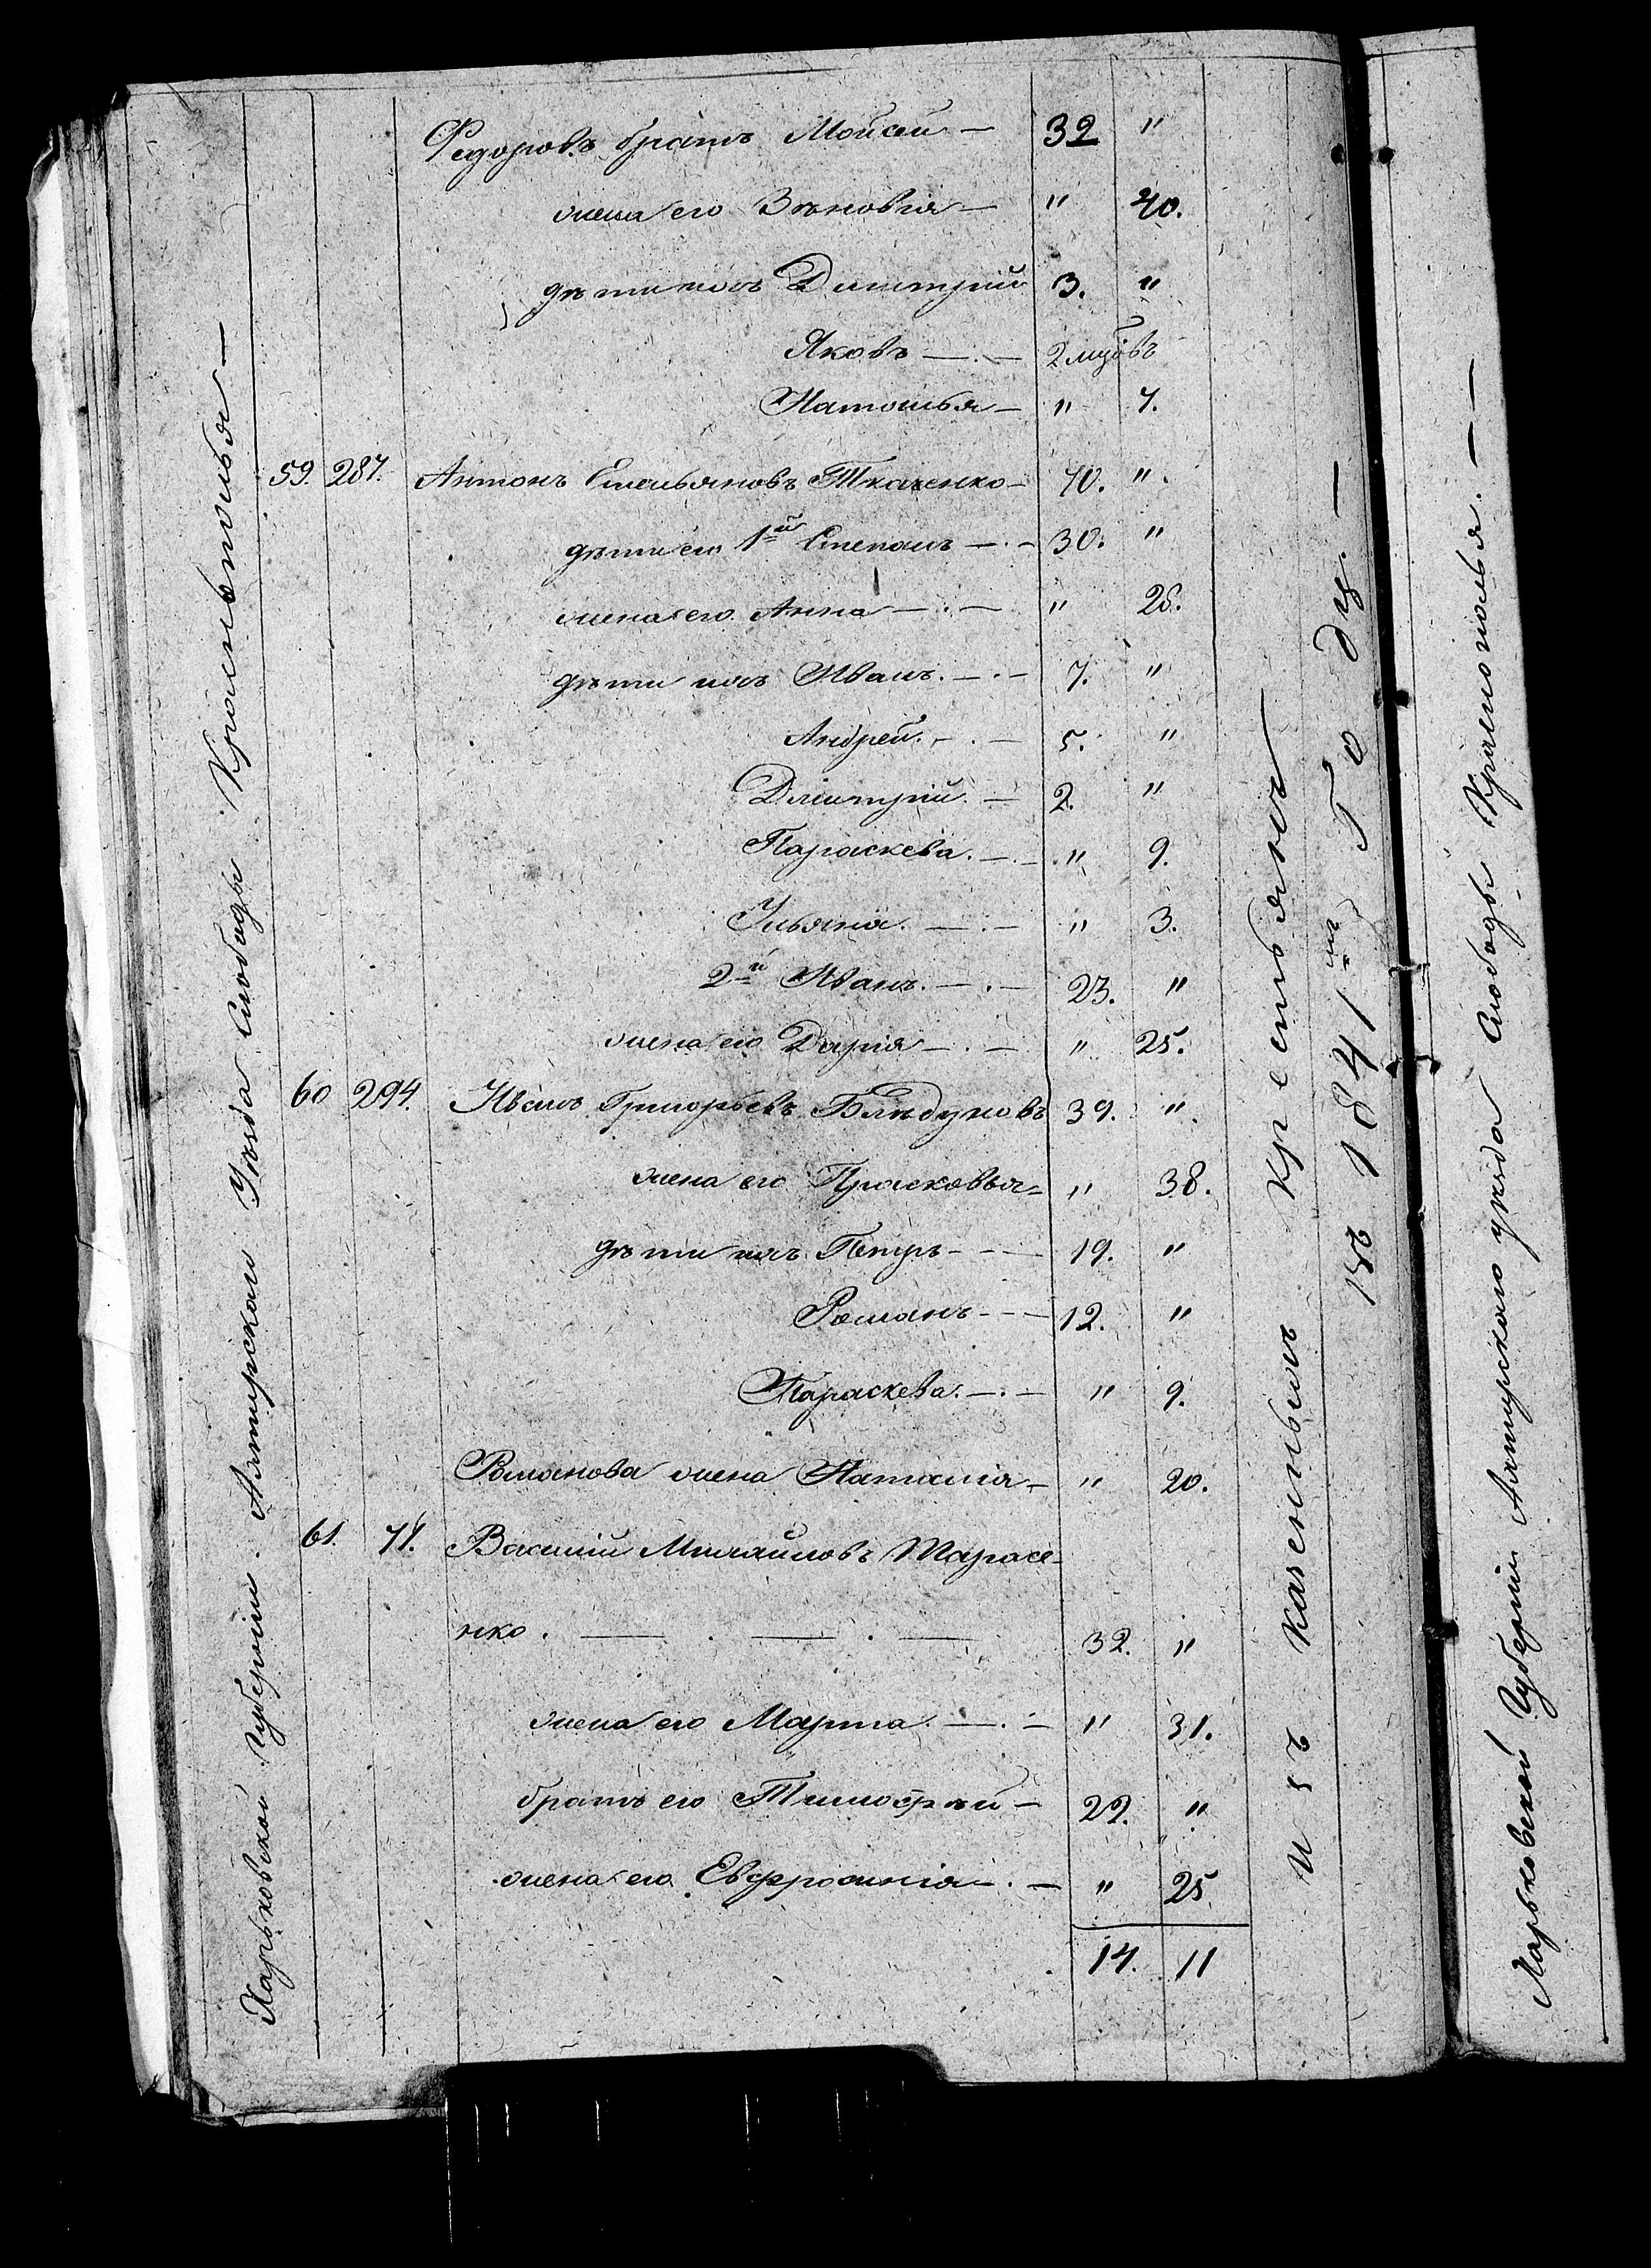 Федоровъ братъ Мойсей — 32 "
жена его Зѣновія — " 40.
дѣти ихъ Дмитрий 3. "
Яковъ — . — 2 муж
Наталья — " 7.
59. 287. Антонъ Емельяновъ Ткаченко — 70. "
дѣти его 1й Степанъ — . — 30. "
жена его Анна — . — " 28.
дѣти ихъ Иванъ. — . — 7. "
Андрей. — . — 5. "
Дмитрий. — 2. "
Параскева. — . — " 9.
Ульяна. — . — " 3.
2й Иванъ. — . — 23. "
жена его Дарія — . — " 25.
60 294. Иванъ Григорьевъ 39. "
жена его Прасковья = " 38.
дѣти ихъ Петръ — — — 19. "
Романъ — — — 12. "
Параскева. — . — " 9.
Романова жена Наталія — " 20.
61. 71. Василий Михайловъ Тарасе-
нко . — . — . — 32. "
жена его Марта. — . — " 31.
братъ его Тимофѣй — 22. "
жена его Евфросинія — . — " 25
14. 11
Харьковской Губерніи. Ахтырскаго Уѣзда Слободы Краснополья —
Изъ казенныхъ крестьянъ
въ 1841мъ Году. —
Харьковской Губерніи Ахтырскаго уѣзда Слободы Краснополья. — —